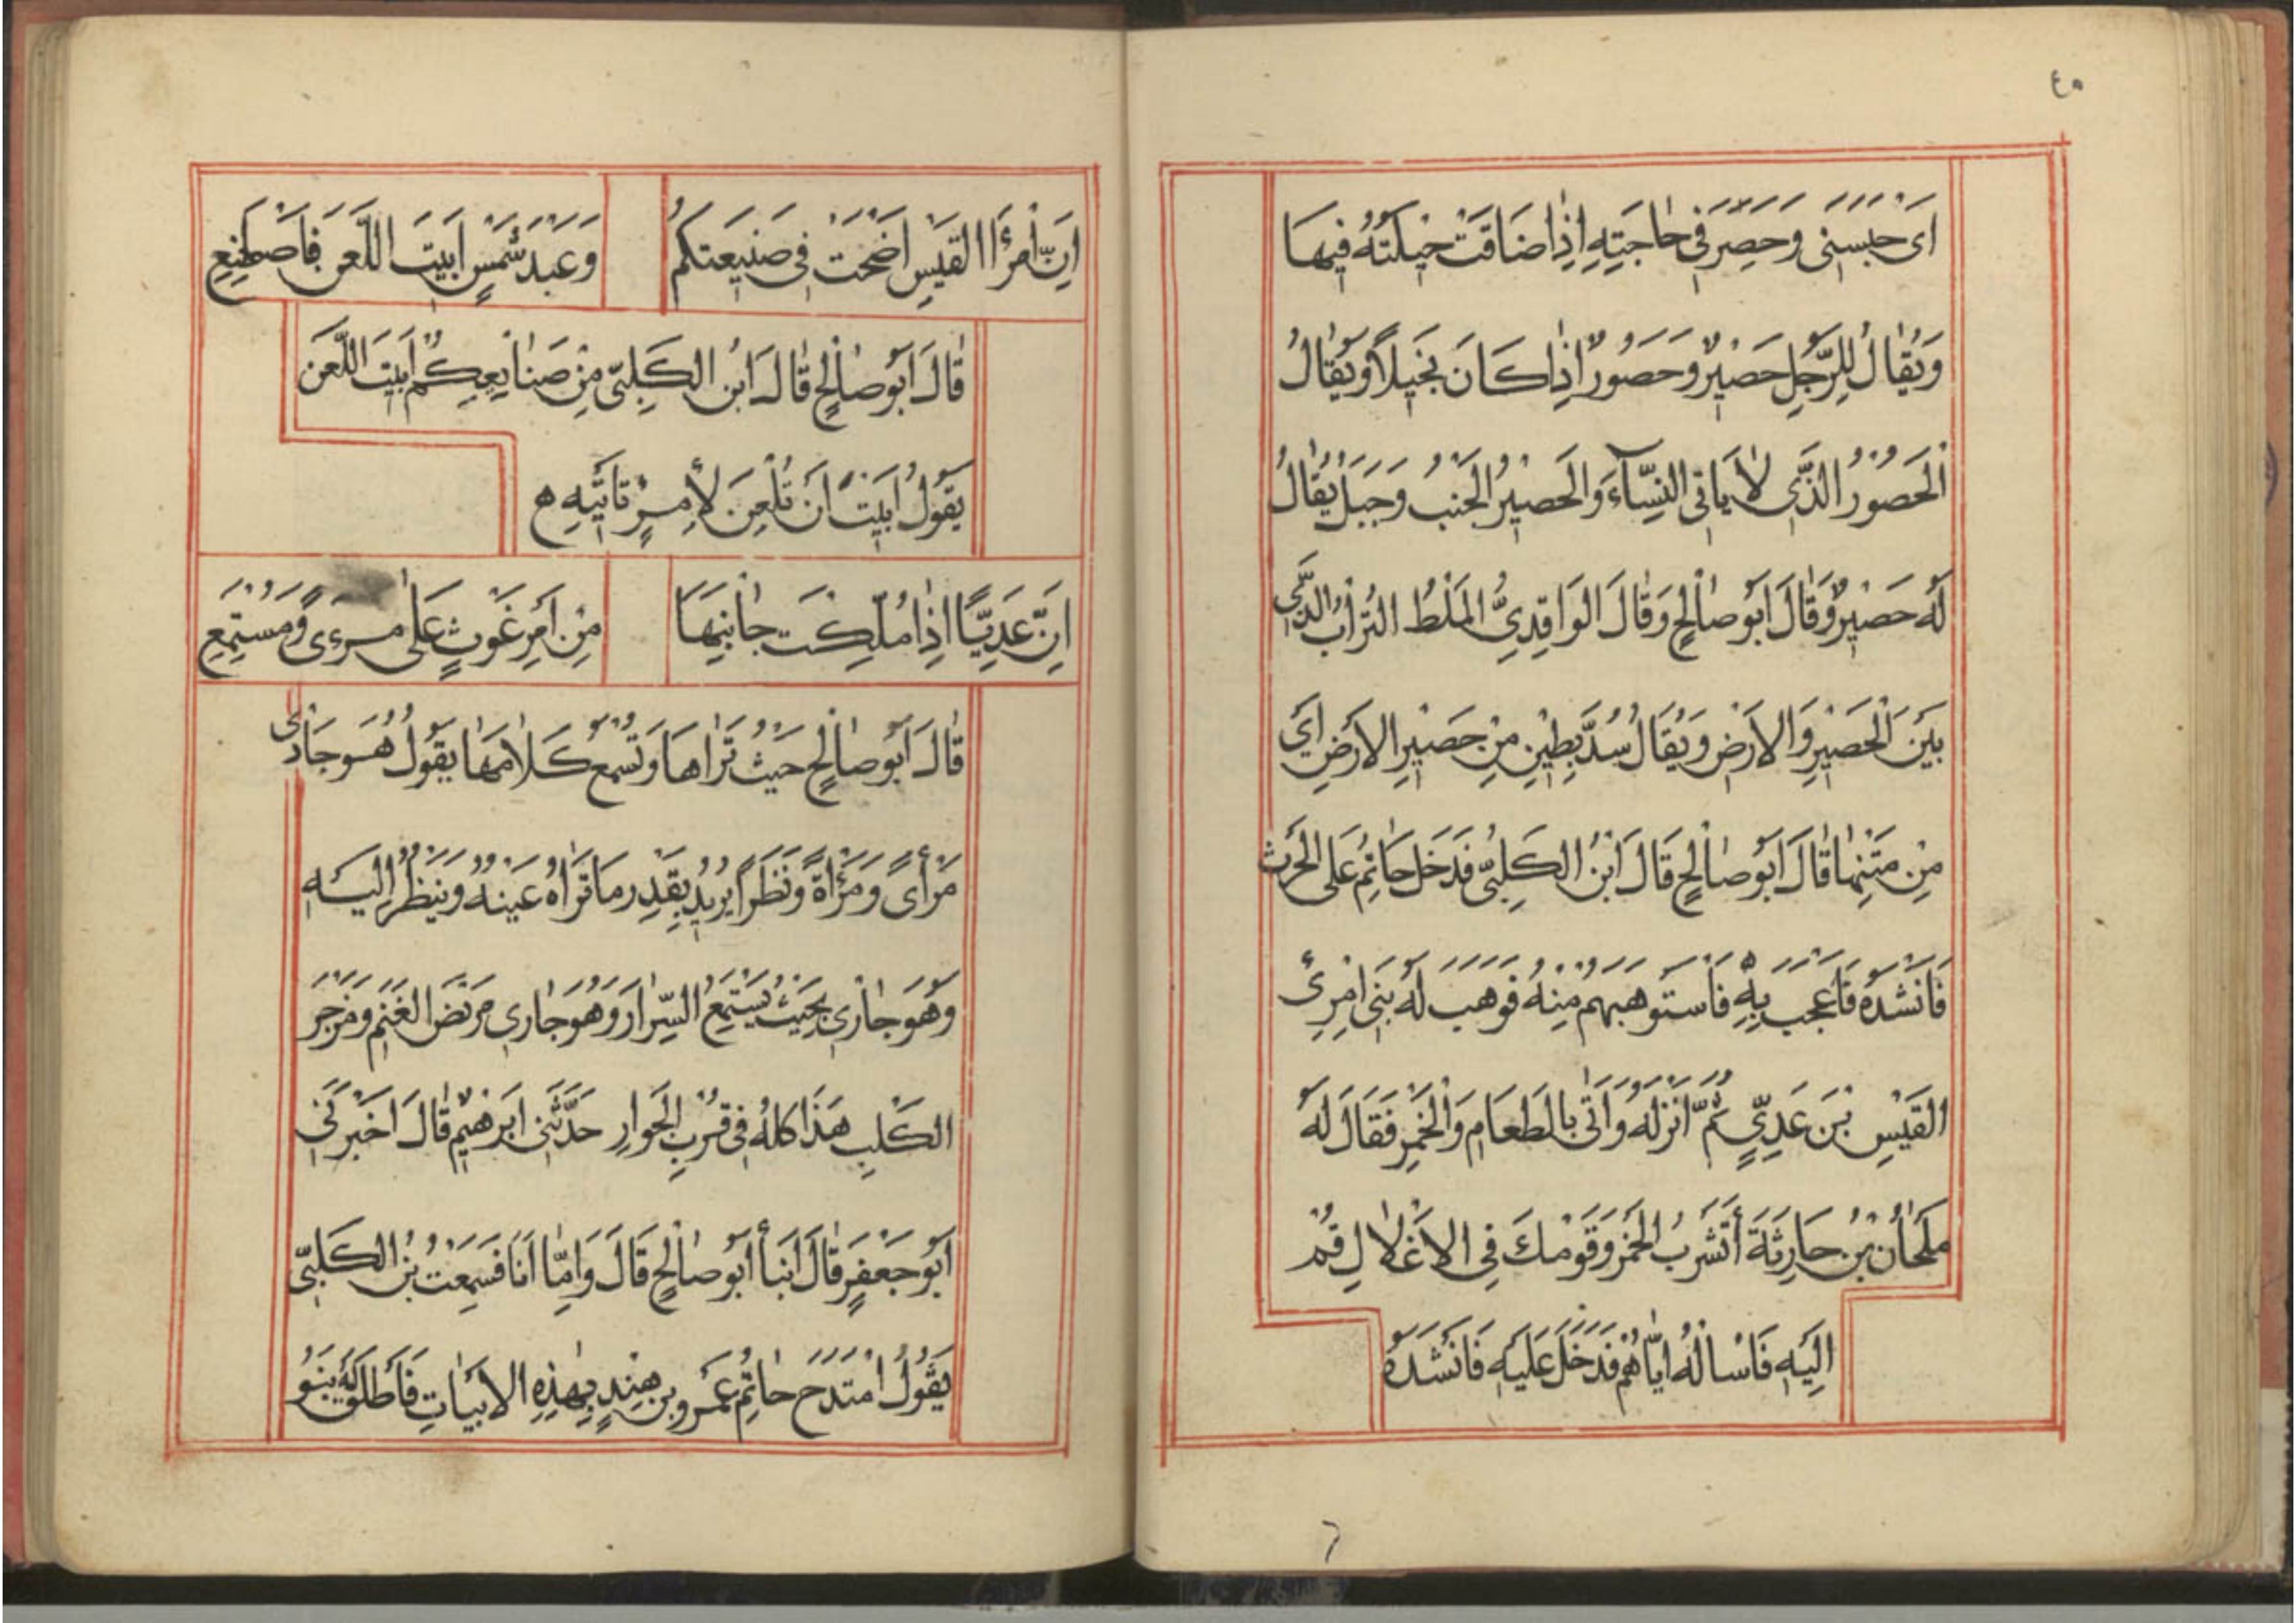 ٤٥
اَىْ حَبَسَنِى وَحَصِرَ فِى حَاجَتِهِ اِذَا ضَاقَتْ حِيلَتُهُ فِيهَا
وَيُقَالُ لِلرَّجُلِ حَصِيرٌ وَحَصُورٌ اِذَا كَانَ بَخِيلًا وَيُقَالُ
اَلْحَصُورُ الَّذِى لَا يَاتِى النِّسَآءَ وَالْحَصِيرُ الْجَنْبُ وَجَبَلٌ يُقَالُ
لَهُ حَصِيرٌ وَقَالَ اَبُو صَالِحٍ وَقَالَ الْوَاقِدِىُّ الْمَلْطُ التُّرَابُ الَّذِى
بَيْنَ الْحَصِيرِ وَالْاَرْضِ وَيُقَالُ سُدَّ بِطِينٍ مِنْ حَصِيرِ الْاَرْضِ اَىْ
مِنْ مَتْنِهَا قَالَ اَبُو صَالِحٍ قَالَ ابْنُ الْكَلْبِىِّ فَدَخَلَ حَاتِمٌ عَلَى الْحَرْثِ
فَاَنْشَدَهُ فَاَعْجَبَ بِهِ فَاسْتَوْهَبَهُمْ مِنْهُ فَوَهَبَ لَهُ بَنِى امْرِئِ
الْقَيْسِ بْنَ عَدِىٍّ ثُمَّ اَنْزَلَهُ وَاَتَى بِالطَّعَامِ وَالْخَمْرِ فَقَالَ لَهُ
مِلْحَانُ بْنُ حَارِثَةَ أَتَشْرَبُ الْخَمْرَ وَقَوْمُكَ فِى الْاَغْلَالِ قُمْ
اِلَيْهِ فَاسْالْهُ اِيَّاهُمْ فَدَخَلَ عَلَيْهِ فَاَنْشَدَهُ
اِنَّ امْرَأَ الْقَيْسِ اَضْحَتْ فِى صَنِيعَتِكُمْ وَعَبْدَ شَمْسٍ اَبَيْتَ اللَّعْنَ فَاصْطَنِعِ
قَالَ اَبُو صَالِحٍ قَالَ ابْنُ الْكَلْبِىِّ مِنْ صَنَايِعِكُمْ اَبَيْتَ اللَّعْنَ
يَقُولُ اَبَيْتَ اَنْ تُلْعَنَ لِأَمْرٍ تَاتِيهِ ه
اِنَّ عَدِيًّا اِذَا مَلَّكْتَ جَانِبَهَا مِنْ اَمْرِ غَوْثٍ عَلَى مَرْءًى وَمُسْتَمَعِ
قَالَ اَبُو صَالِحٍ حَيْثُ تَرَاهَا وَتَسْمَعُ كَلَامَهَا يَقُولُ هُوَ جَارِى
مَرْأًى وَمَرْأَةً وَنَظَرًا يُرِيدُ بِقَدْرِ مَا تَرَاهُ عَيْنُهُ وَيَنْظُرُ اِلَيْهِ
وَهُوَ جَارِى بِحَيْثُ يَسْتَمِعُ السِّرَارَ وَهُوَ جَارِى مَرْبَضَ الْغَنَمِ وَمَزْجَرَ
الْكَلْبِ هَذَا كُلُّهُ فِى قُرْبِ الْجِوَارِ حَدَّثَنِى اِبْرَهِيمُ قَالَ اَخْبَرَنِى
اَبُو جَعْفَرٍ قَالَ اَنْبَأَ اَبُو صَالِحٍ قَالَ وَاَمَّا اَنَا فَسَمِعْتُ بْنَ الْكَلْبِىِّ
يَقُولُ امْتَدَحَ حَاتِمٌ عَمْرَو بْنَ هِنْدٍ بِهَذِهِ الْاَبْيَاتِ فَاَطْلَقَ لَهُ بَنُو